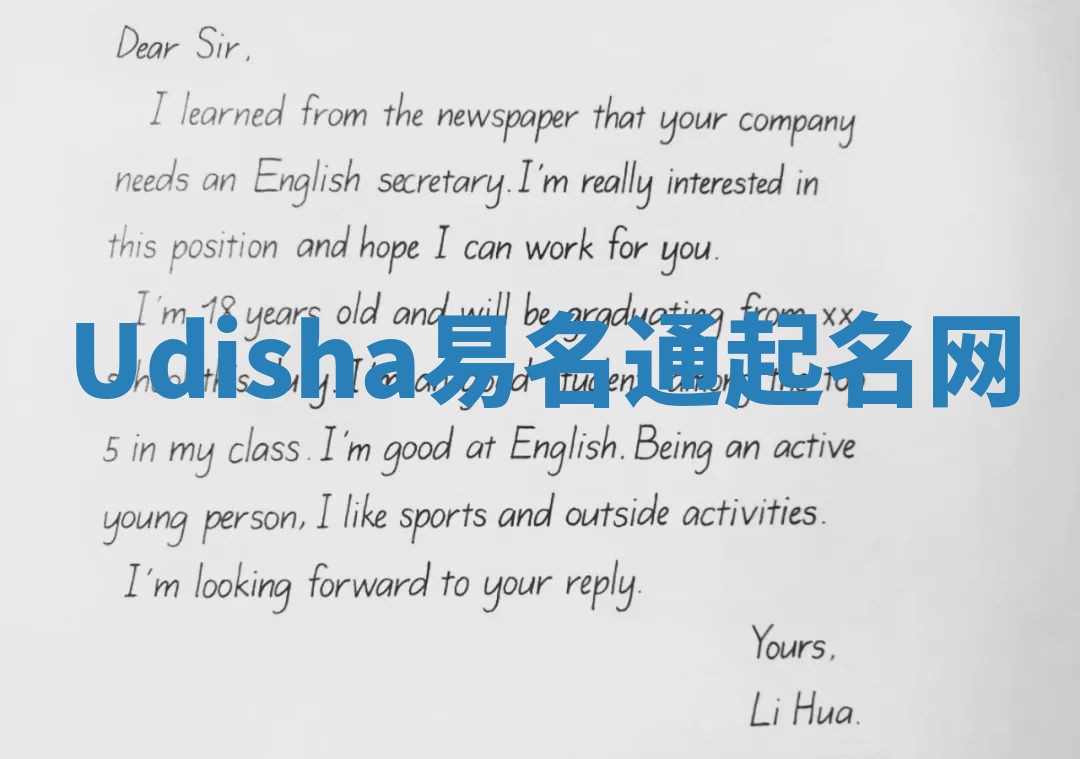 Dear Sir,
I learned from the newspaper that your company
needs an English secretary. I'm really interested in
this position and hope I can work for you.
I'm 18 years old and will be graduating from xx
Udisha易名通起名网
this July. I'm student among the top
5 in my class. I'm good at English. Being an active
young person, I like sports and outside activities.
I'm looking forward to your reply.
Yours,
Li Hua.